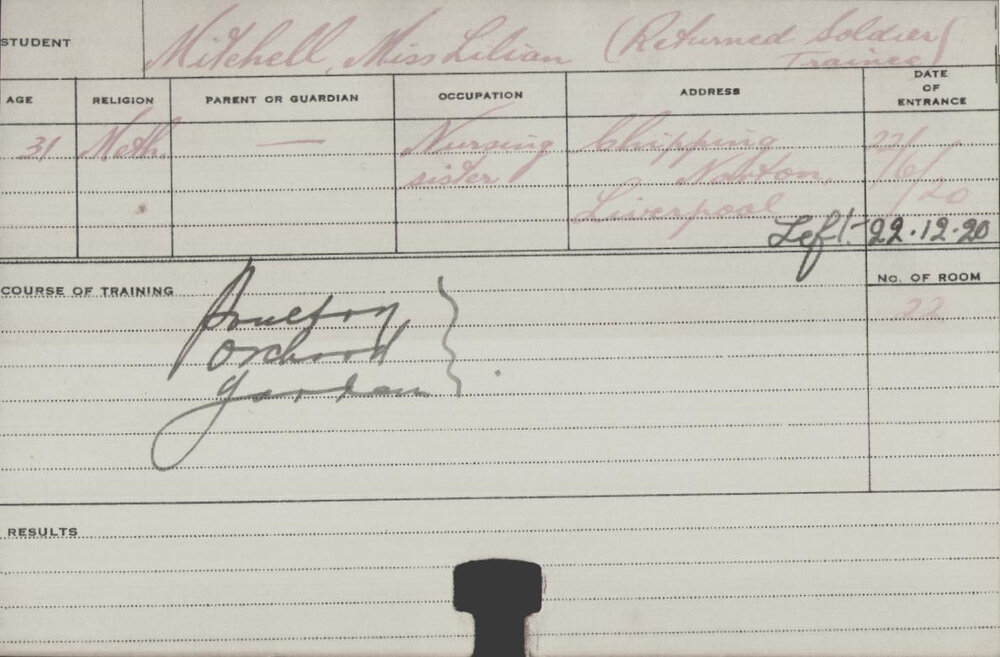 STUDENT Mitchell, Miss Lilian (Returned Soldier
Trainee)
AGE RELIGION PARENT OR GUARDIAN OCCUPATION ADDRESS DATE OF ENTRANCE
31 Meth. — Nursing Chipping 22/
sister Norton, /6/
Liverpool /20
Left:- 22.12.20
COURSE OF TRAINING No. OF ROOM
Poultry 22
Orchard
Garden
RESULTS